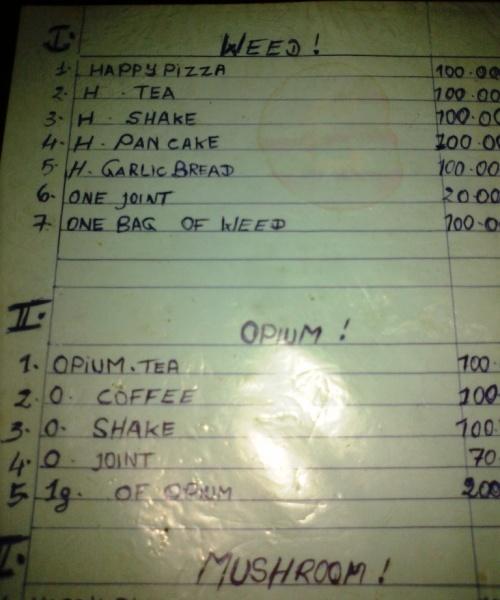 I. WEED !
1. HAPPY PIZZA 100.00
2. H . TEA 100.00
3. H . SHAKE 100.00
4. H . PAN CAKE 100.00
5. H. GARLIC BREAD 100.00
6. ONE JOINT 20.00
7. ONE BAG OF WEED 100.0
II. OPIUM !
1. OPIUM.TEA 100.
2. O. COFFEE 100
3. O. SHAKE 100
4. O. JOINT 70
5. 1g. OF OPIUM 200
I. MUSHROOM !